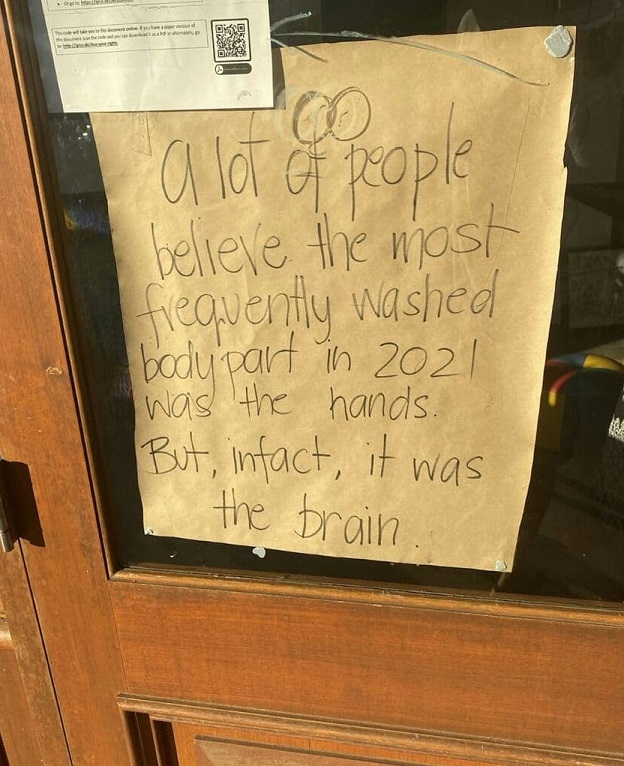 This code will take you to this document online. If you have a paper version of
this document scan the code and you can download it as a Pdf or alternately, go
to:
A lot of people
believe the most
frequently washed
body part in 2021
was the hands.
But, infact, it was
the brain.